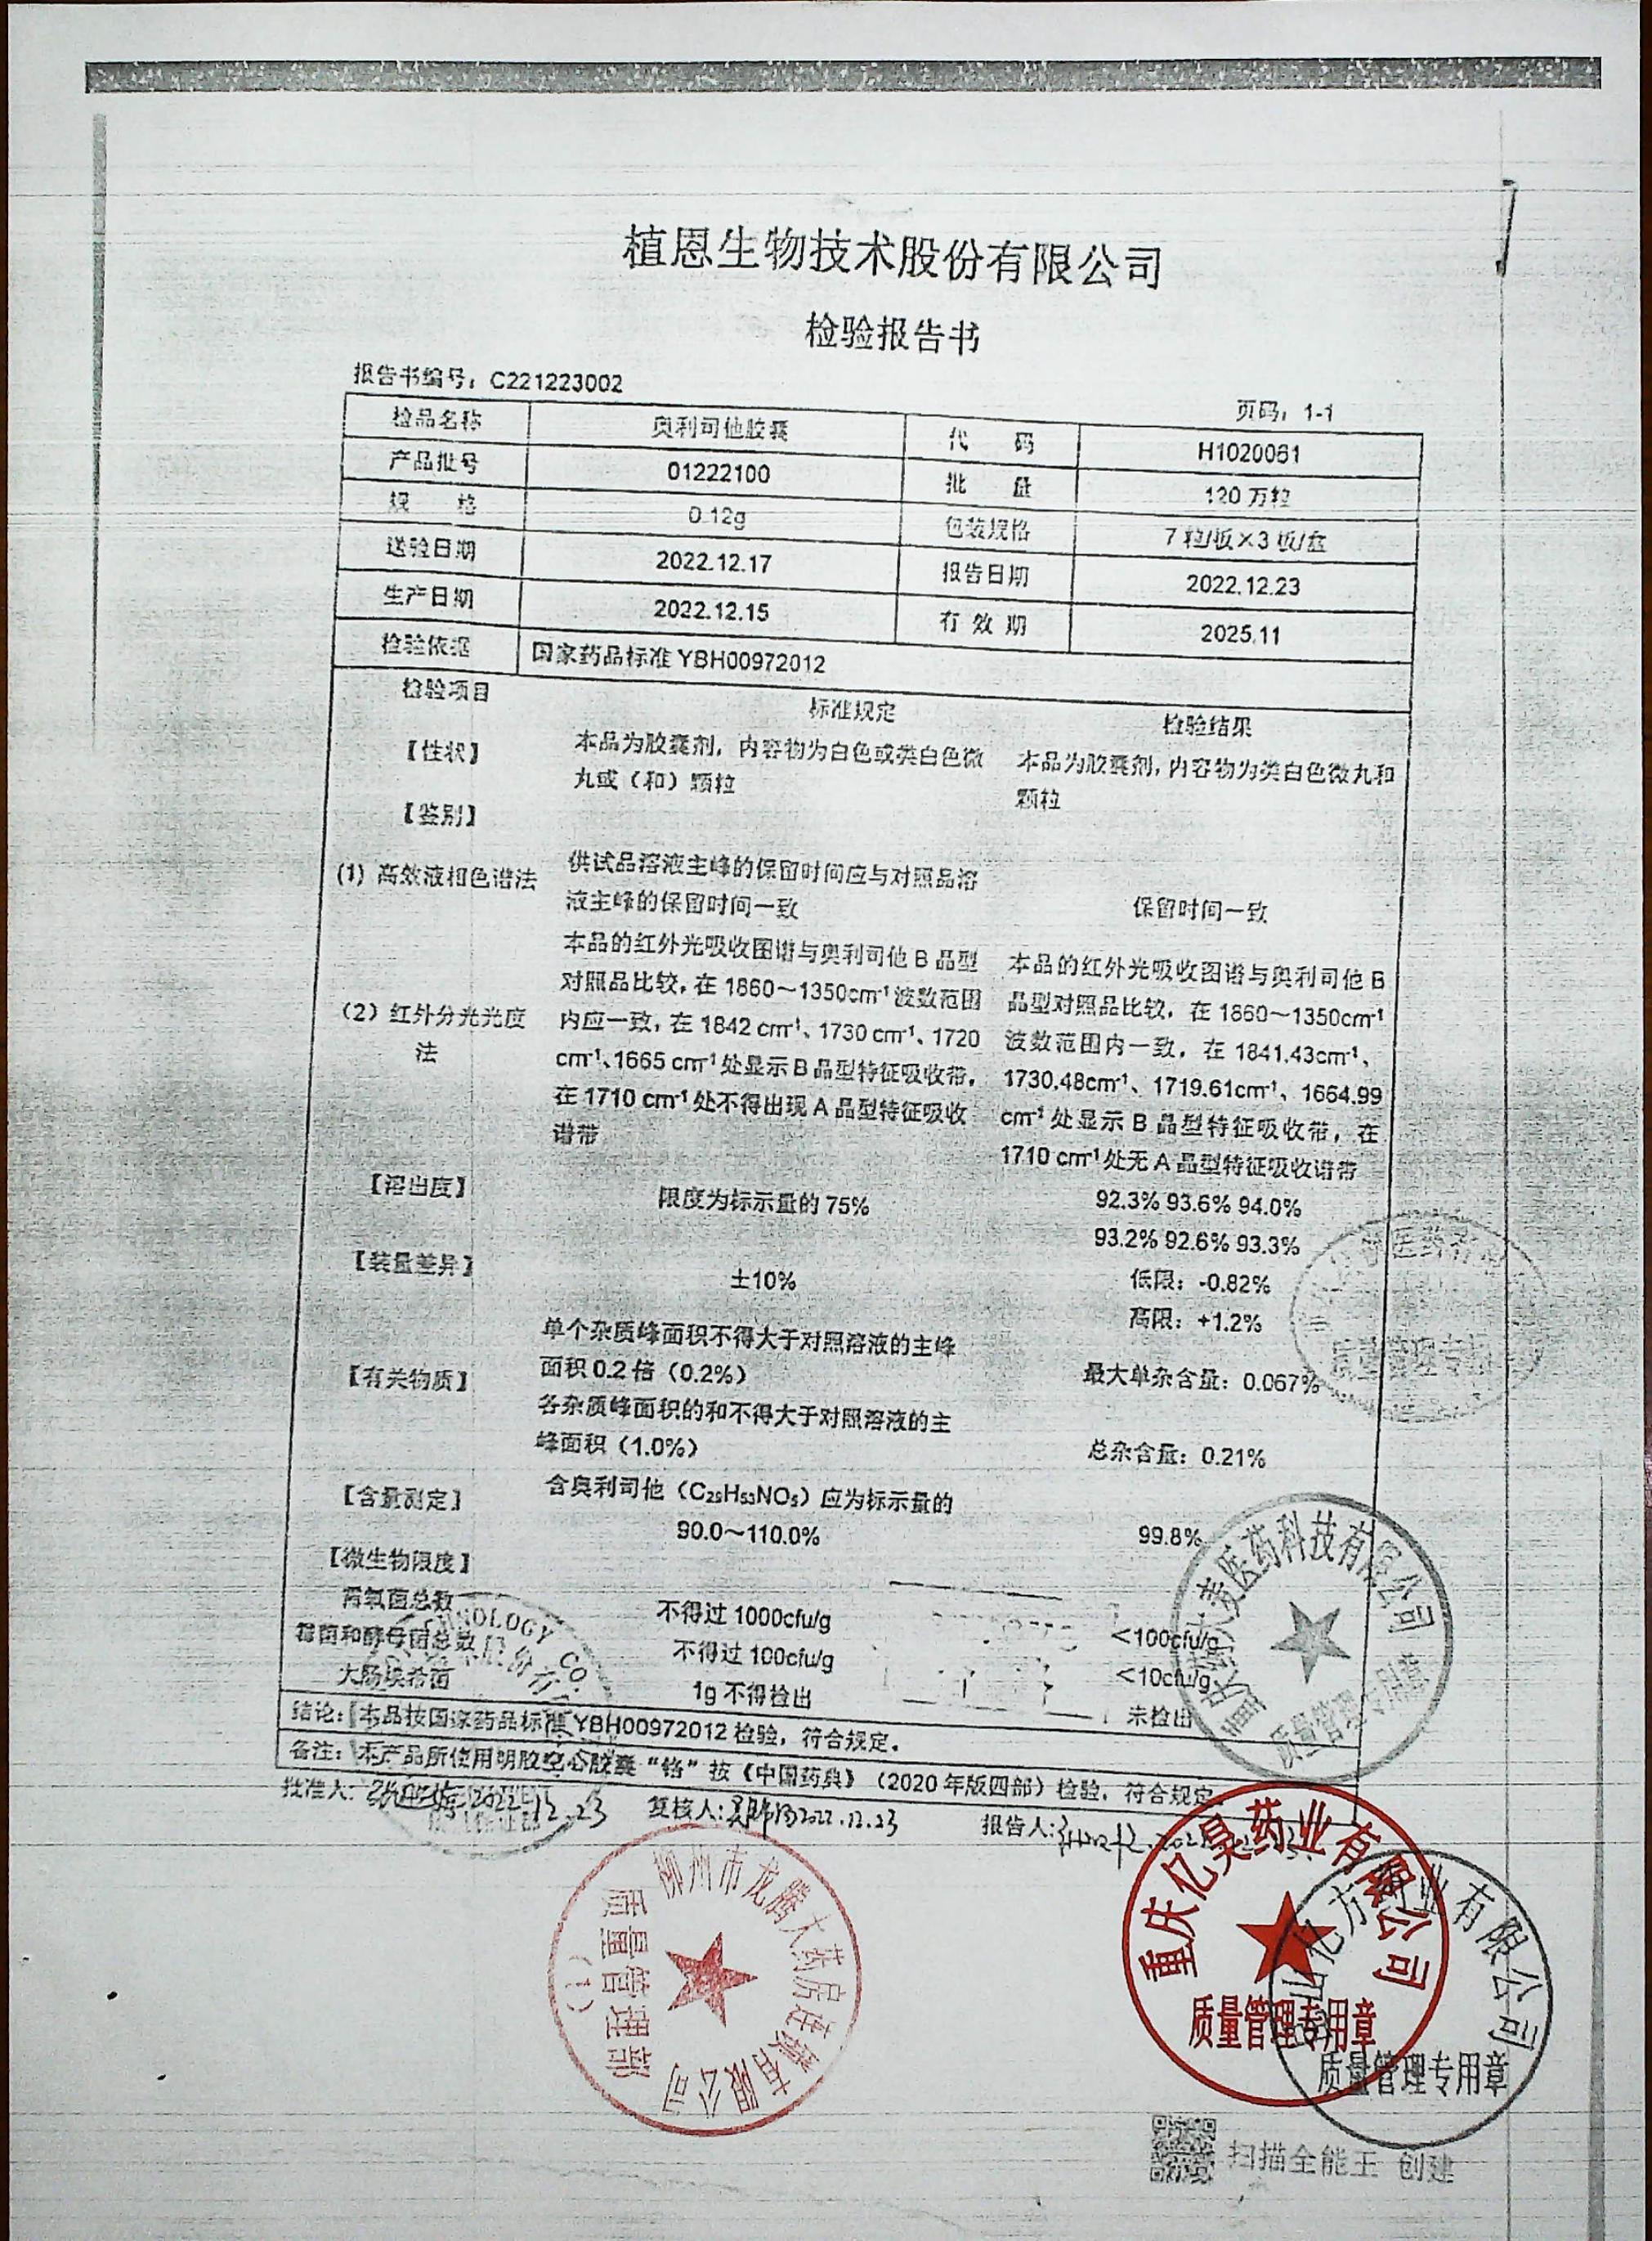 植恩生物技术股份有限公司
检验报告书
报告书编号：C221223002
页码：1-1
检品名称 奥利司他胶囊 代 码 H1020061
产品批号 01222100 批 量 120万粒
规 格 0.12g 包装规格 7粒/板×3板/盒
送验日期 2022.12.17 报告日期 2022.12.23
生产日期 2022.12.15 有效期 2025.11
检验依据 国家药品标准 YBH00972012
检验项目 标准规定 检验结果
【性状】 本品为胶囊剂，内容物为白色或类白色微 本品为胶囊剂，内容物为类白色微丸和
丸或（和）颗粒 颗粒
【鉴别】
(1) 高效液相色谱法 供试品溶液主峰的保留时间应与对照品溶
液主峰的保留时间一致 保留时间一致
本品的红外光吸收图谱与奥利司他 B 晶型 本品的红外光吸收图谱与奥利司他 B
对照品比较，在 1860～1350cm⁻¹ 波数范围 晶型对照品比较，在 1860～1350cm⁻¹
（2）红外分光光度 内应一致，在 1842 cm⁻¹、1730 cm⁻¹、1720 波数范围内一致，在 1841.43cm⁻¹、
法 cm⁻¹、1665 cm⁻¹ 处显示 B 晶型特征吸收带， 1730.48cm⁻¹、1719.61cm⁻¹、1664.99
在 1710 cm⁻¹ 处不得出现 A 晶型特征吸收 cm⁻¹ 处显示 B 晶型特征吸收带，在
谱带 1710 cm⁻¹ 处无 A 晶型特征吸收谱带
【溶出度】 限度为标示量的 75% 92.3% 93.6% 94.0%
93.2% 92.6% 93.3%
【装量差异】 ±10% 低限：-0.82%
高限：+1.2%
单个杂质峰面积不得大于对照溶液的主峰
【有关物质】 面积 0.2 倍（0.2%） 最大单杂含量：0.067%
各杂质峰面积的和不得大于对照溶液的主
峰面积（1.0%） 总杂含量：0.21%
【含量测定】 含奥利司他（C₂₉H₅₃NO₅）应为标示量的
90.0～110.0% 99.8%
【微生物限度】
需氧菌总数 不得过 1000cfu/g <100cfu/g
霉菌和酵母菌总数 不得过 100cfu/g <10cfu/g
大肠埃希菌 1g 不得检出 未检出
结论：本品按国家药品标准 YBH00972012 检验，符合规定。
备注：本产品所使用明胶空心胶囊“铬”按《中国药典》（2020 年版四部）检验，符合规定。
批准人： 2022.12.23 复核人： 2022.12.23 报告人：
质量管理专用
医药科技有限公司
质量管理专用章
NOLOGY CO.
柳州市龙腾大药房连锁有限公司
质量管理部
（1）
重庆亿昊药业有限公司
质量管理专用章
亿方 业有限公司
质量管理专用章
扫描全能王 创建